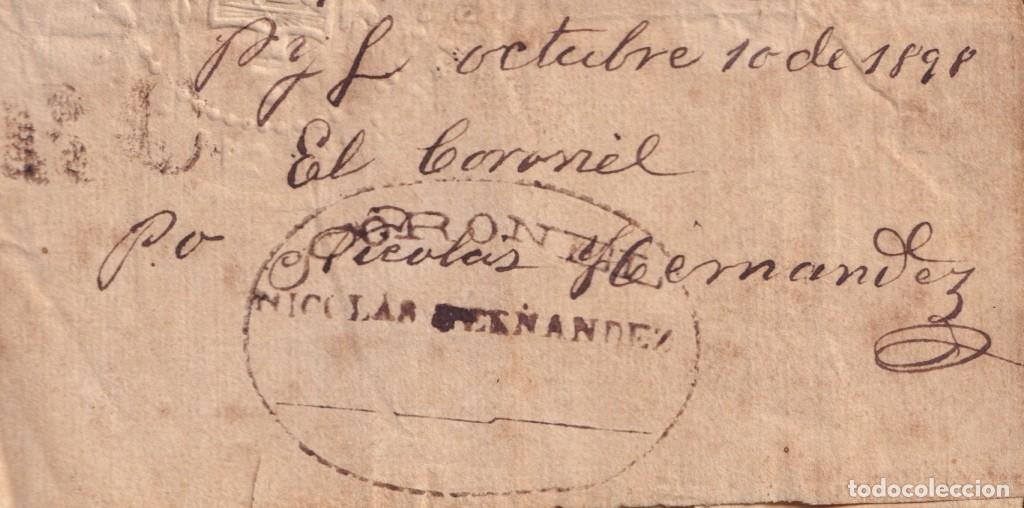 P y L octubre 10 de 1898
El Coronel
CORONEL
P.o Nicolás Hernandez
NICOLAS HERNANDEZ
todocoleccion